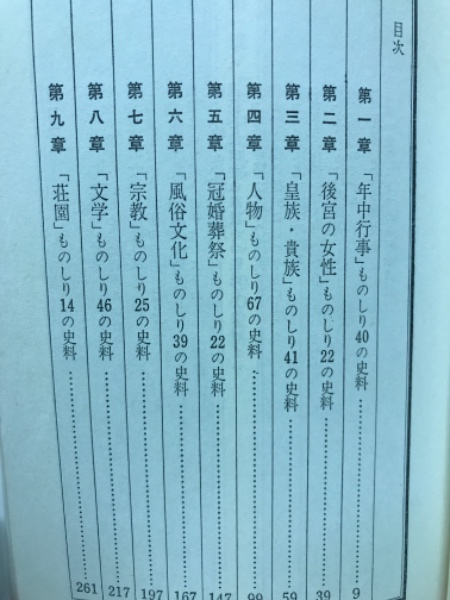 目次
第一章 「年中行事」ものしり40の史料……………………9
第二章 「後宮の女性」ものしり22の史料……………………39
第三章 「皇族・貴族」ものしり41の史料……………………59
第四章 「人物」ものしり67の史料……………………99
第五章 「冠婚葬祭」ものしり22の史料……………………147
第六章 「風俗文化」ものしり39の史料……………………167
第七章 「宗教」ものしり25の史料……………………197
第八章 「文学」ものしり46の史料……………………217
第九章 「荘園」ものしり14の史料……………………261